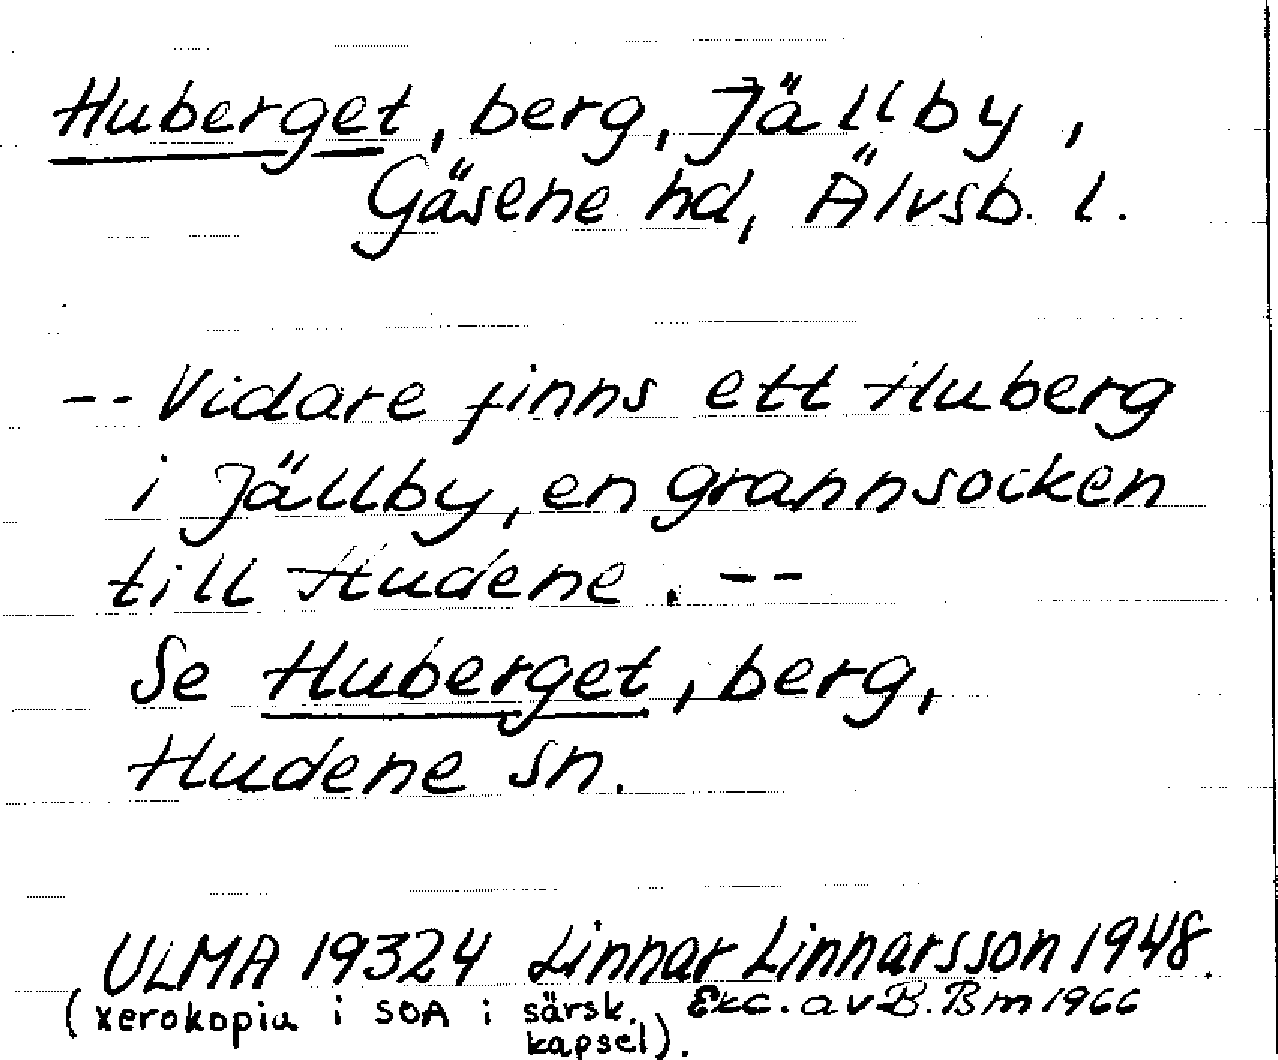 Huberget, berg, Jällby,
Gäsene hd, Älvsb. l.
-- Vidare finns ett Huberg
i Jällby, en grannsocken
till Hudene. --
Se Huberget, berg,
Hudene sn.
ULMA 19324 Linnar Linnarsson 1948.
(xerokopia i SOA i särsk. Exc. av B. Bm 1966
kapsel).